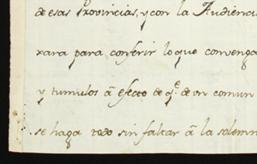 de esas Provincias, y con la Audienci
xara para conferir lo que convenga
y tumulos â efecto de q.e de un comun
se haga todo sin faltar â la solemn